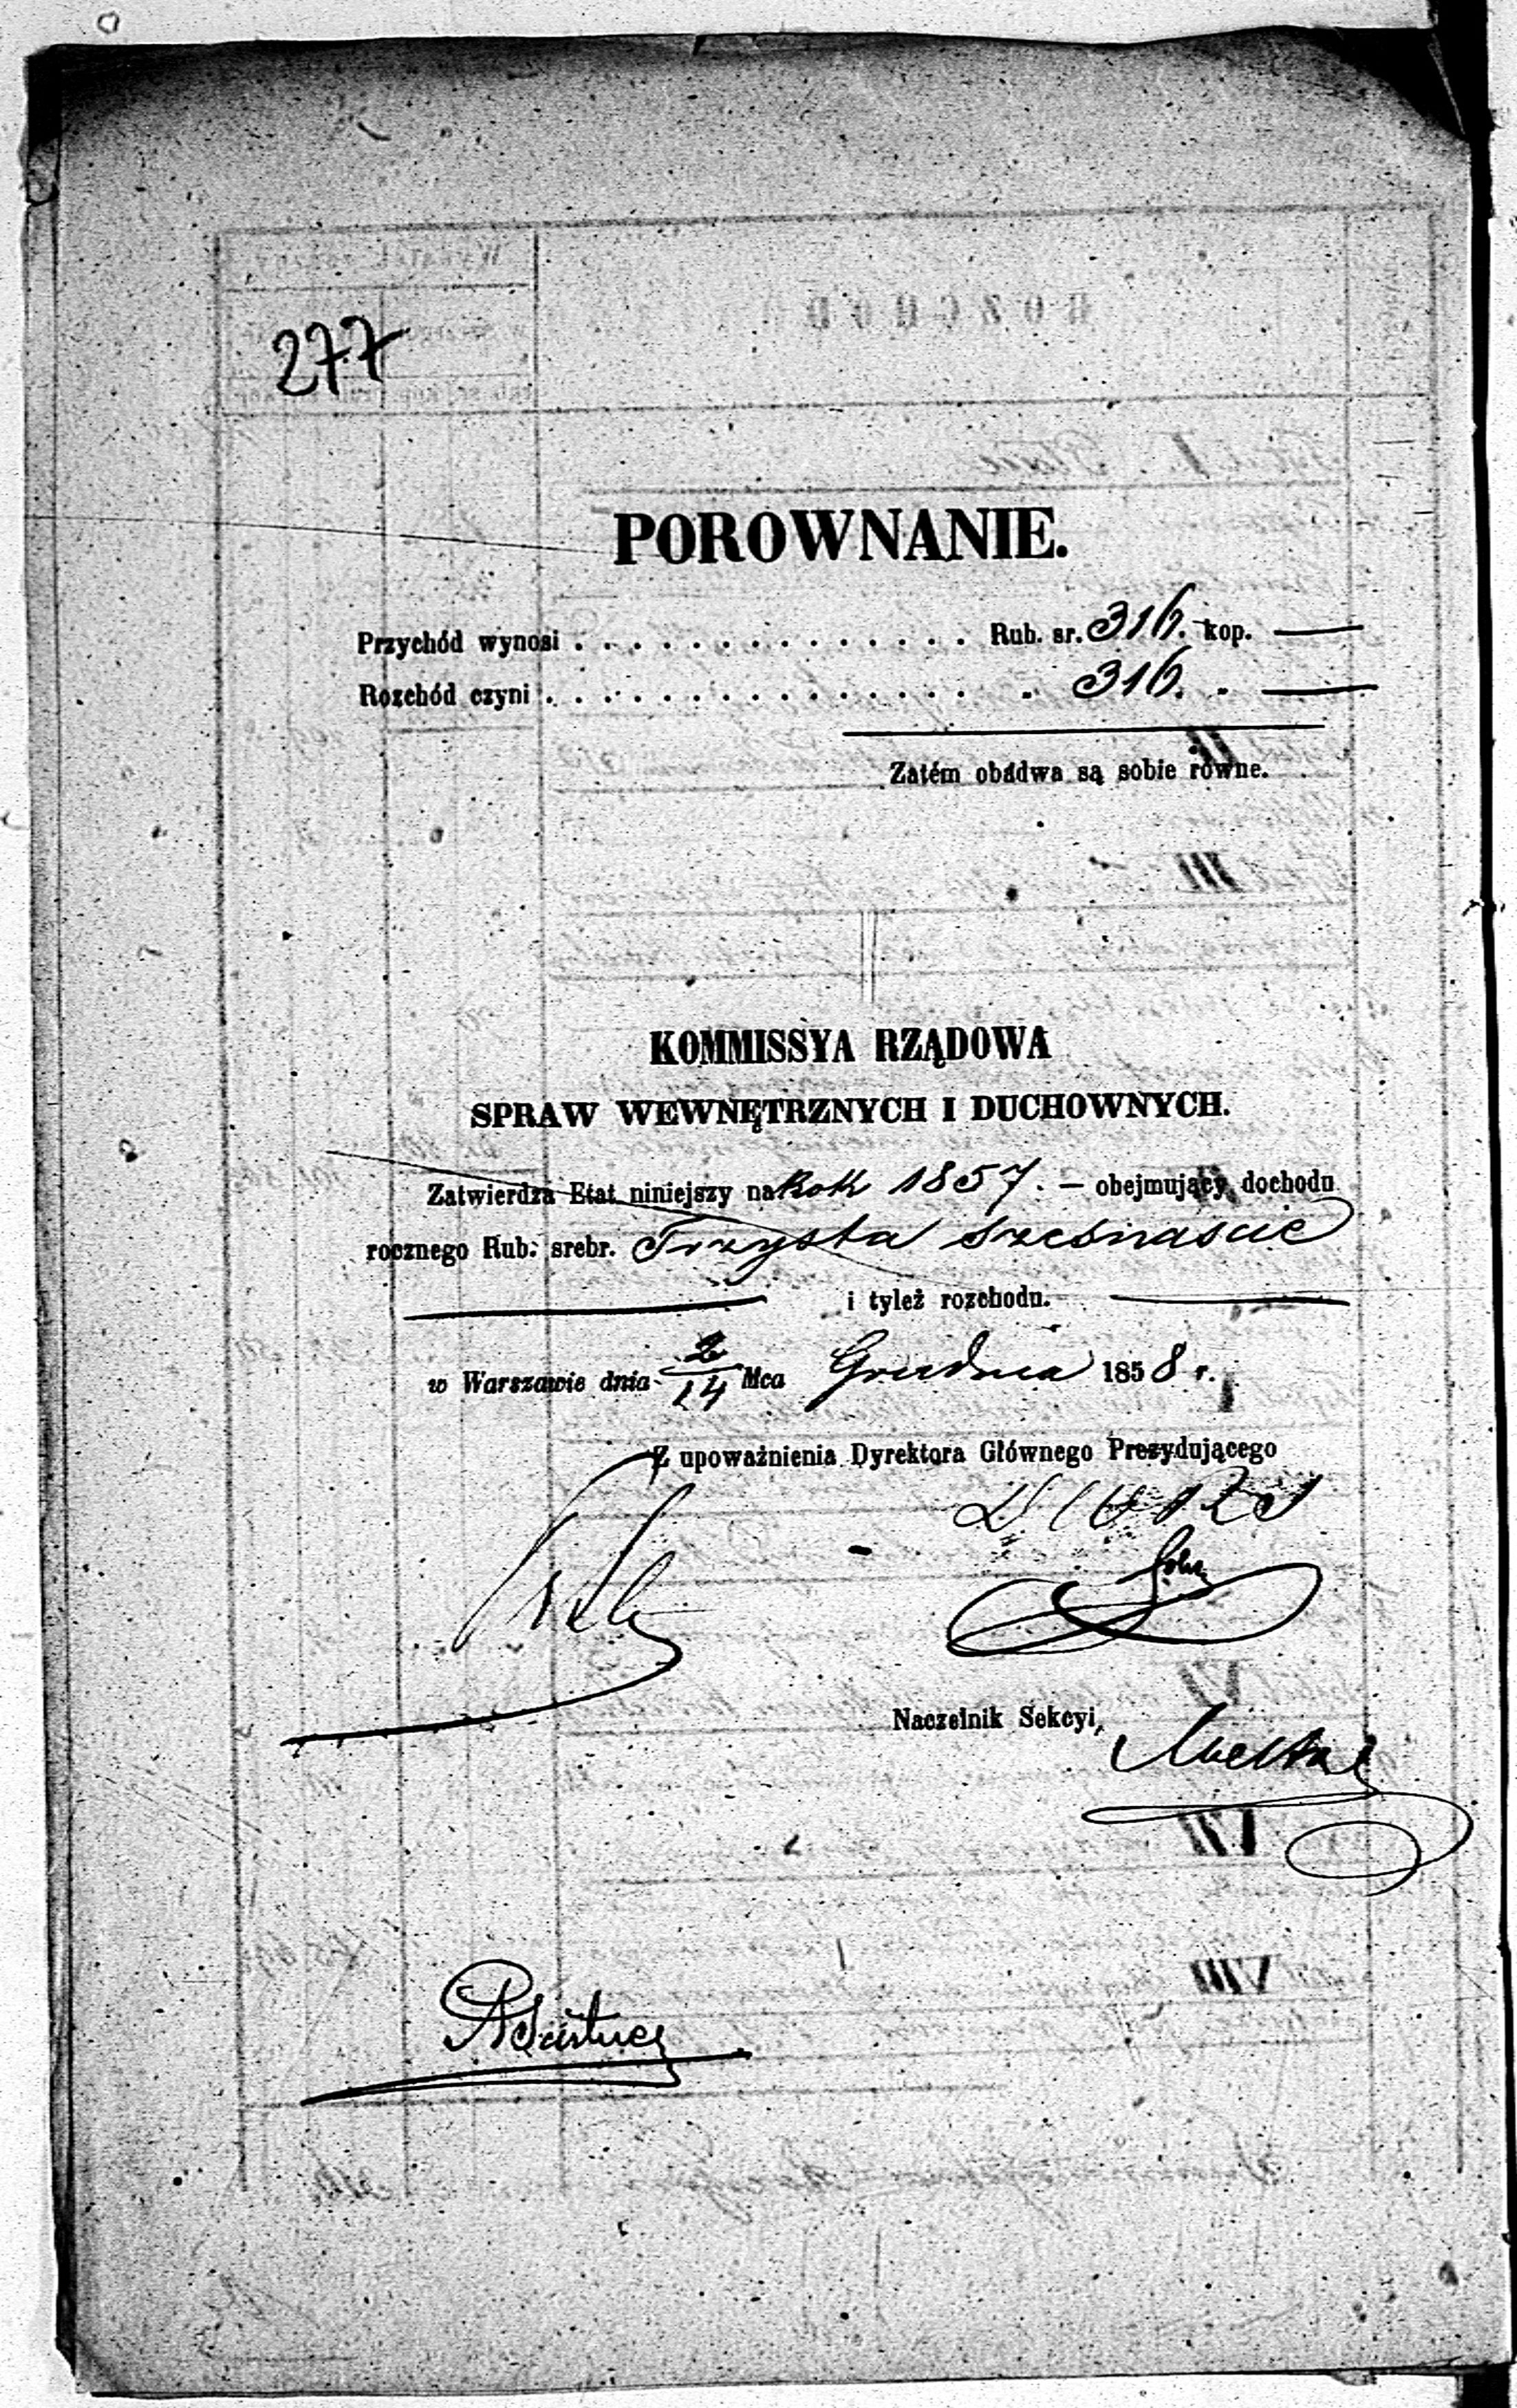 277
POROWNANIE.
Przychód wynosi . . . . . . . . . . . . . . Rub. sr. 316. kop. —
Rozchód czyni . . . . . . . . . . . . . . . . . 316. - —
Zatém obadwa są sobie równe.
KOMMISSYA RZĄDOWA
SPRAW WEWNĘTRZNYCH I DUCHOWNYCH.
Zatwierdza Etat niniejszy na Rok 1857. — obejmujący dochodu
rocznego Rub. srebr. Trzysta szesnascie
— i tyleż rozchodu. —
w Warszawie dnia 2/14 Mca Grudnia 1858 r.
Z upoważnienia Dyrektora Głównego Prezydującego
Naczelnik Sekcyi,